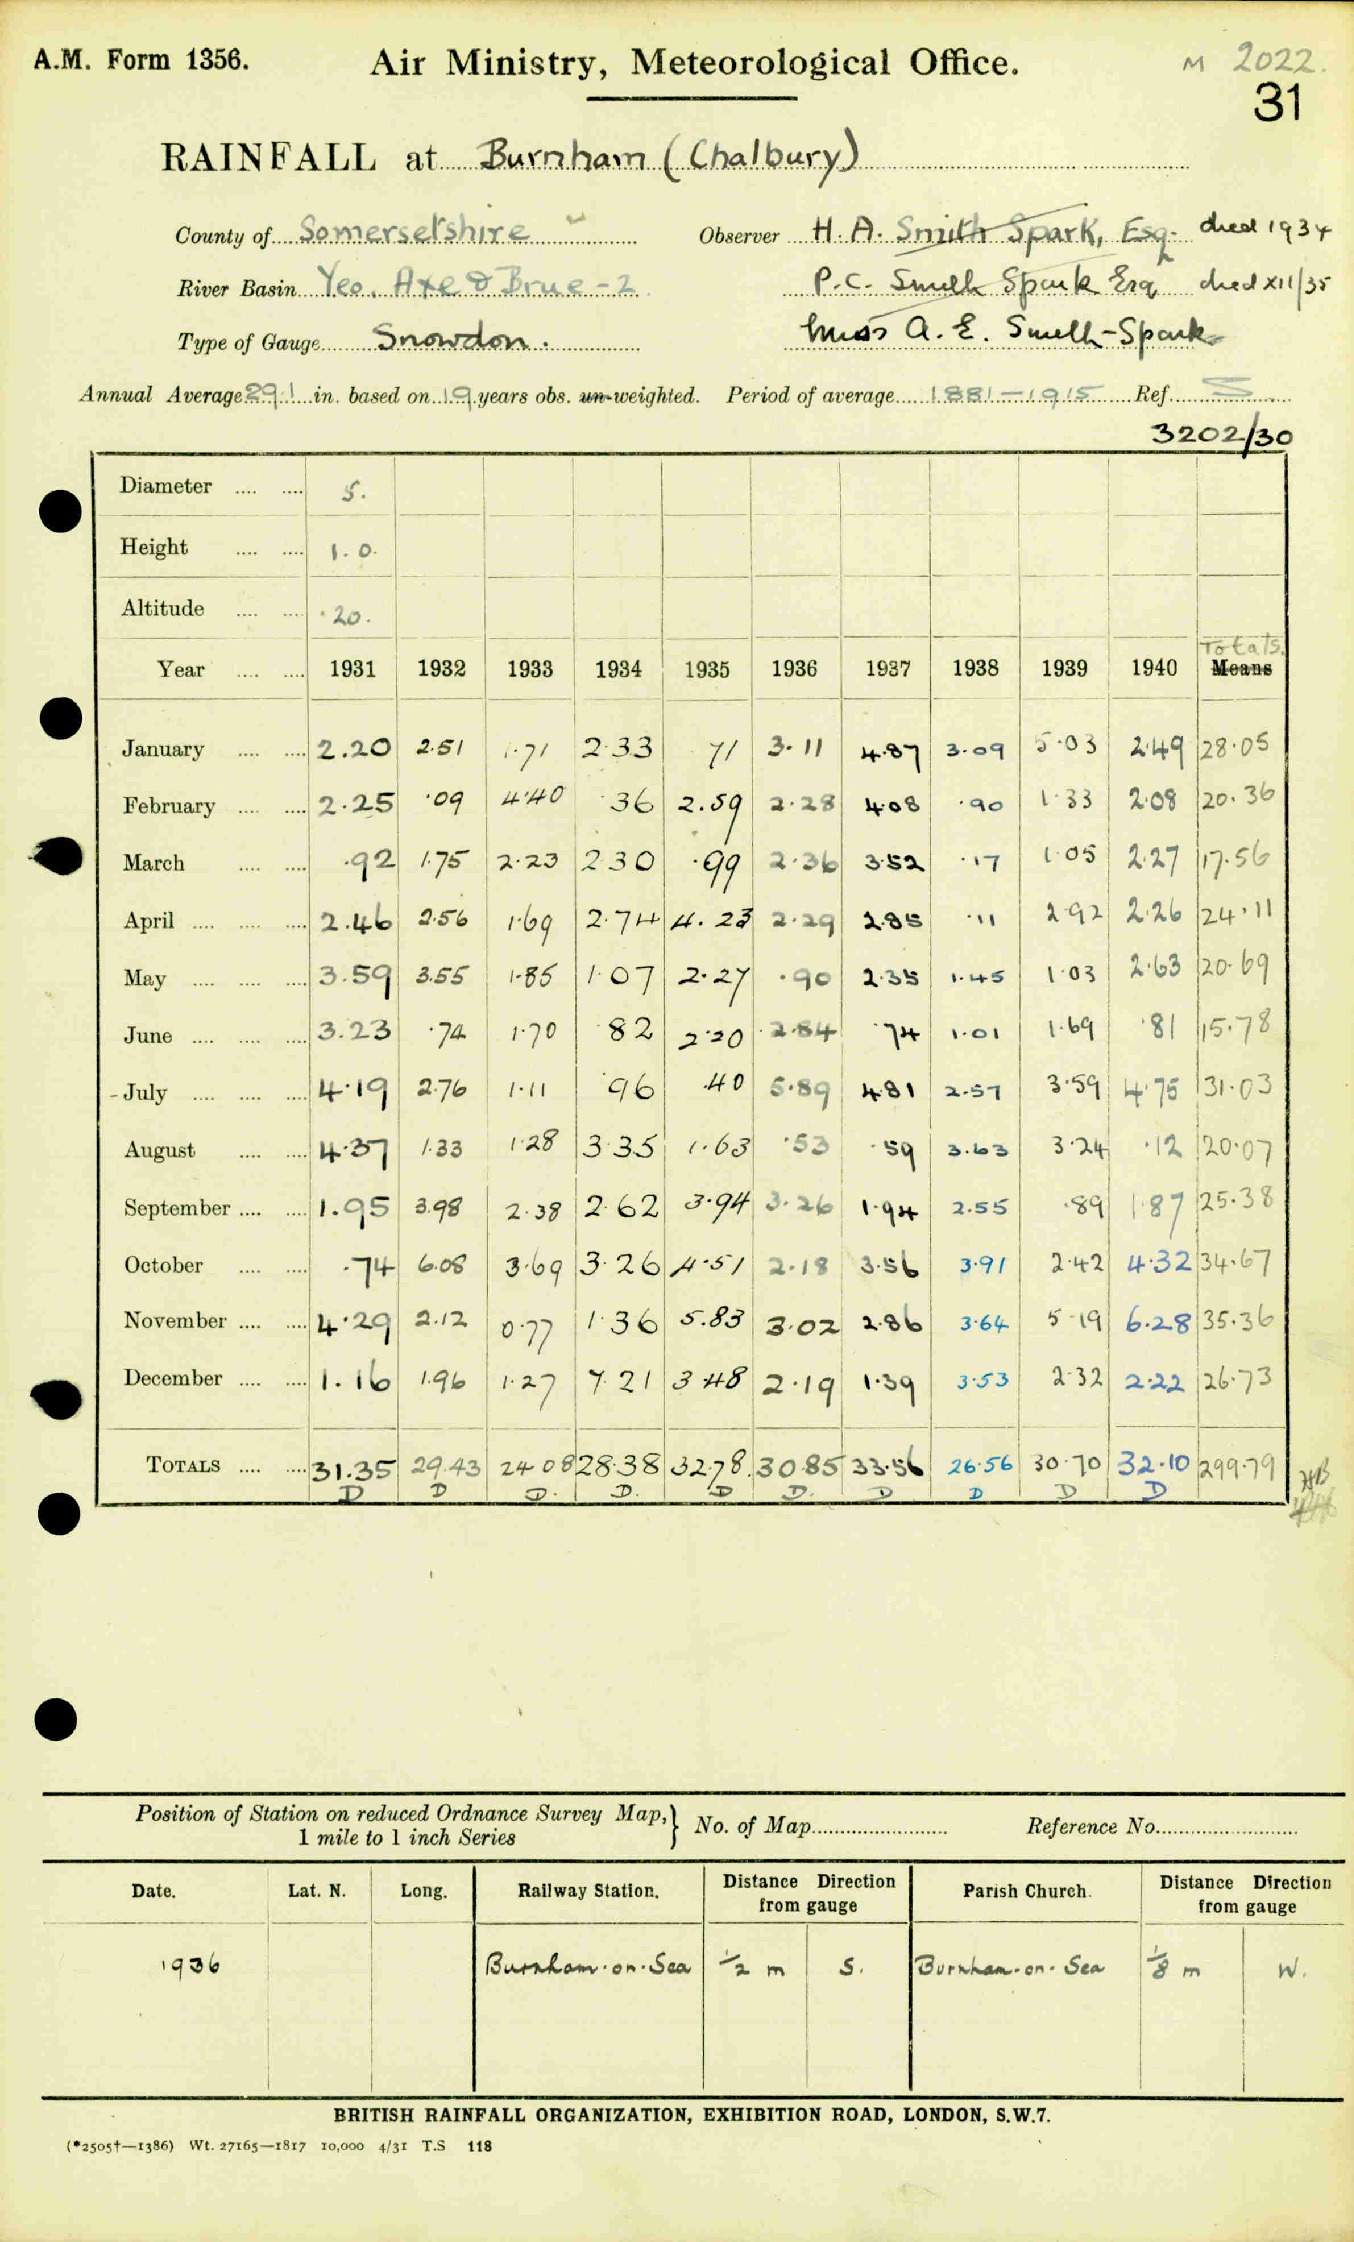 A.M. Form 1356. Air Ministry, Meteorological Office. M 2022.
31
RAINFALL at Burnham (Chalbury)
County of Somersetshire Observer H. A. Smith Spark, Esq. died 1934
River Basin Yeo, Axe & Brue - 2 P.C. Smith Spark Esq died XII/35
Type of Gauge Snowdon. Miss A. E. Smith-Spark
Annual Average 29.1 in. based on 19 years obs. un-weighted. Period of average 1881-1915 Ref. S
3202/30
Diameter .... .... 5.
Height .... .... 1.0.
Altitude .... .... 20.
Totals.
Year .... .... 1931 1932 1933 1934 1935 1936 1937 1938 1939 1940 Means
January .... .... 2.20 2.51 1.71 2.33 71 3.11 4.87 3.09 5.03 2.49 28.05
February .... .... 2.25 .09 4.40 .36 2.59 2.28 4.08 .90 1.33 2.08 20.36
March .... .... .92 1.75 2.23 2.30 .99 2.36 3.52 .17 1.05 2.27 17.56
April .... .... .... 2.46 2.56 1.69 2.74 4.23 2.29 2.85 .11 2.92 2.26 24.11
May .... .... .... 3.59 3.55 1.85 1.07 2.27 .90 2.35 1.45 1.03 2.63 20.69
June .... .... .... 3.23 .74 1.70 .82 2.20 2.84 .74 1.01 1.69 .81 15.78
July .... .... .... 4.19 2.76 1.11 .96 .40 5.89 4.81 2.57 3.59 4.75 31.03
August .... .... 4.37 1.33 1.28 3.35 1.63 .53 .59 3.63 3.24 .12 20.07
September .... .... 1.95 3.98 2.38 2.62 3.94 3.26 1.94 2.55 .89 1.87 25.38
October .... .... .74 6.08 3.69 3.26 4.51 2.18 3.56 3.91 2.42 4.32 34.67
November .... .... 4.29 2.12 0.77 1.36 5.83 3.02 2.86 3.64 5.19 6.28 35.36
December .... .... 1.16 1.96 1.27 7.21 3.48 2.19 1.39 3.53 2.32 2.22 26.73
TOTALS .... .... 31.35 29.43 24.08 28.38 32.78 30.85 33.56 26.56 30.70 32.10 299.79
D D D. D. D D. D D D D
Position of Station on reduced Ordnance Survey Map, No. of Map Reference No.
1 mile to 1 inch Series
Date. Lat. N. Long. Railway Station. Distance from gauge Direction Parish Church. Distance from gauge Direction
1936 Burnham-on-Sea 1/2 m S. Burnham-on-Sea 1/8 m W.
BRITISH RAINFALL ORGANIZATION, EXHIBITION ROAD, LONDON, S.W.7.
(*2505†—1386) Wt. 27165—1817 10,000 4/31 T.S 118